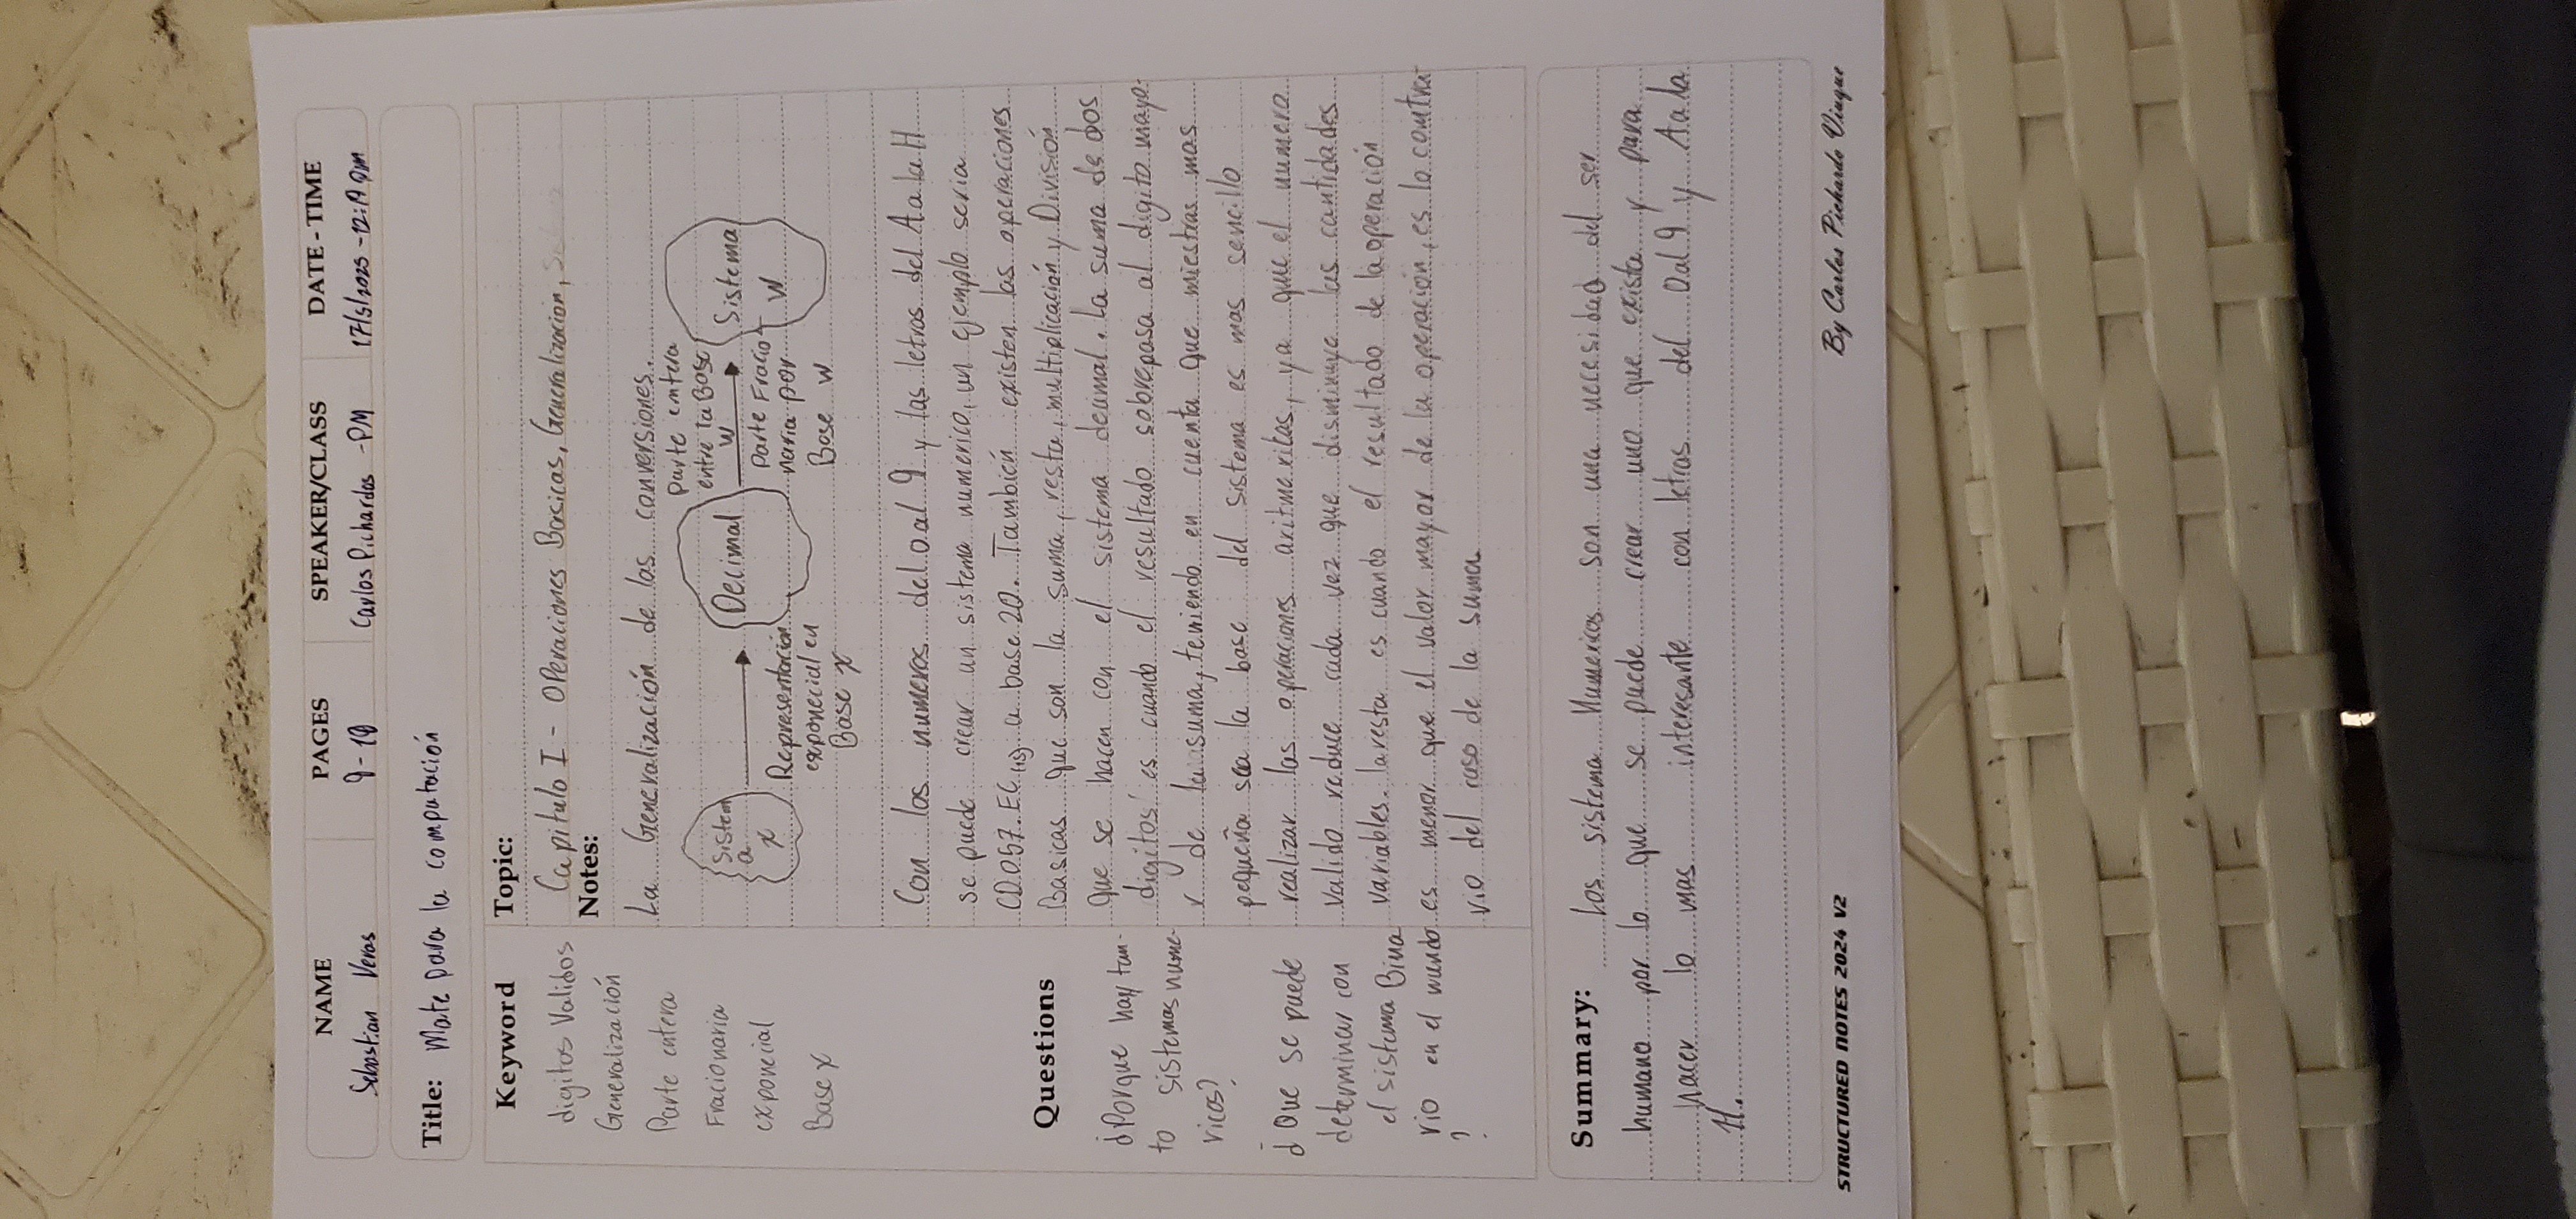 NAME
PAGES
SPEAKER/CLASS
DATE - TIME
Sebastian Veras
Carlos Pichardos -PM
17/5/2025 -12:19 pm
Title: Mate para la computación
Keyword
digitos Validos
Generalización
Parte entera
Fracionaria
exponecial
Base x
Topic:
Capitulo I - Operaciones Basicas, Generalización,
Notes:
La Generalización de las conversiones.
Sistem
a
x
Representación
exponecial en
Base x
Decimal
Parte entera
entre la Base
W
Parte Fracio
naria por
Base W
Sistema
W
Con los numeros del 0 al 9 y las letras del A a la H
se puede crear un sistema numerico, un ejemplo seria
CD057.EC(15) a base 20. También existen las operaciones
Basicas que son la suma, resta, multiplicación y División
que se hacen con el sistema decimal. La suma de dos
digitos es cuando el resultado sobrepasa al digito mayo-
r de la suma, teniendo en cuenta que miestras mas
pequeña sea la base del sistema es mas sencillo
realizar las operaciones aritmeritas, ya que el numero
valido reduce cada vez que disminuye las cantidades
variables. la resta es cuando el resultado de la operación
es menor que el valor mayor de la operación, es lo contra-
rio del caso de la suma
Questions
¿Porque hay tan-
to sistemas nume-
ricos?
¿Que se puede
determinar con
el sistema Bina
rio en el mundo
?
Summary: Los sistema Numericos son una necesidad del ser
humano por lo que se puede crear uno que exista y para
hacer lo mas interesante con letras del 0 al 9 y A a la
H.
STRUCTURED NOTES 2024 V2
By Carlos Pichardo Viuque